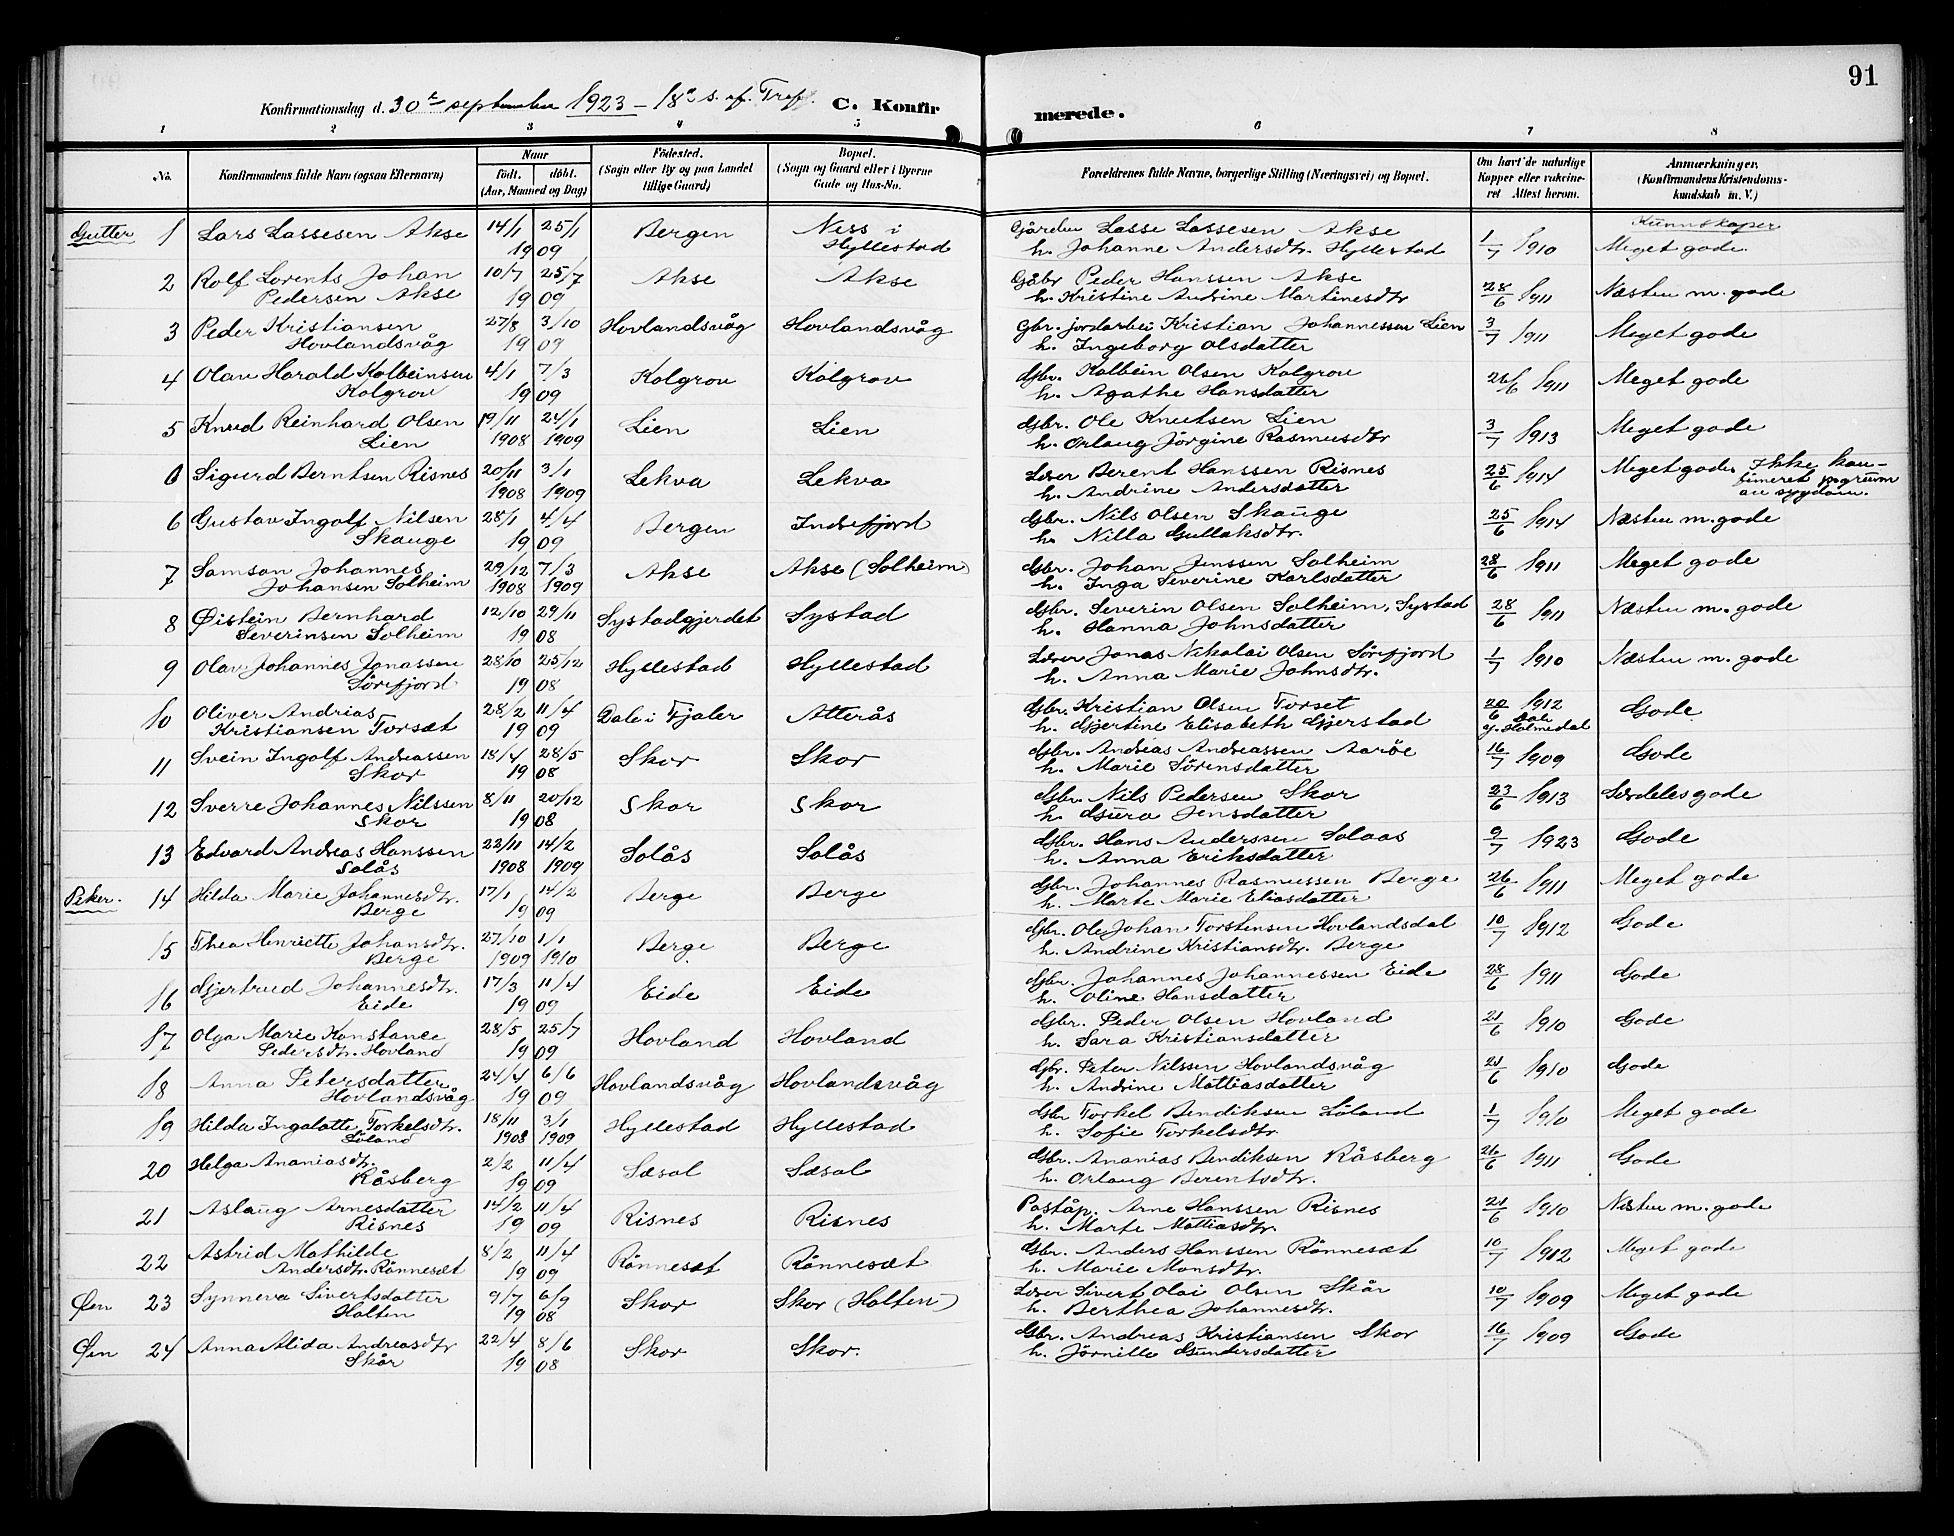 91
Konfirmationsdag d. 30te september 1923 - 18de s. ef. Tref. C. Konfirmerede.
1 2 3 4 5 6 7 8
No. Konfirmandens fulde Navn (ogsaa Efternavn) Naar født. døbt. (Aar, Maaned og Dag) Fødested. (Sogn eller By og paa Landet tillige Gaard) Bopæl. (Sogn og Gaard eller i Byerne Gade og Hus-No. Forældrenes fulde Navne, borgerlige Stilling (Næringsvei) og Bopæl. Om havt de naturlige Kopper eller vakcineret Attest herom. Anmærkninger. (Konfirmandens Kristendomskundskab m. V.)
Kunnskaper
Gutter 1 Lars Lassesen Akse 14/1 25/1 Bergen Ness i Gårdbr Lasse Lassesen Akse 1/7 1910 Meget gode
1909 Hyllestad h. Johanne Andersdtr. Hyllestad
2 Rolf Lorents Johan 10/7 25/7 Akse Akse Gåbr Peder Hanssen Akse 28/6 1911 Næsten m. gode
Pedersen Akse 1909 h. Kristine Andrine Martinesdtr
3 Peder Kristiansen 27/8 3/10 Hovlandsvåg Hovlandsvåg Gbr. jordarbei Kristian Johannessen Lien 3/7 1911 Meget gode
Hovlandsvåg 1909 h. Ingeborg Olsdatter
4 Olav Harald Kolbeinsen 4/1 7/3 Kolgrov Kolgrov Gbr. Kolbein Olsen Kolgrov 26/6 1911 Meget gode
Kolgrov 1909 h. Agathe Hansdatter
5 Knud Reinhard Olsen 19/11 24/1 Lien Lien Gbr. Ole Knutsen Lien 3/7 1913 Meget gode
Lien 1908 1909 h. Orlaug Jørgine Rasmusdtr
0 Sigurd Berntsen Risnes 20/11 3/1 Lekva Lekva Lærer Berent Hanssen Risnes 25/6 1914 Meget gode. Ikke kon-
1908 1909 h. Andrine Andersdatter firmeret pågrunn
av sygdom.
6 Gustav Ingolf Nilsen 28/1 4/4 Bergen Indrefjord Gbr. Nils Olsen Skauge 25/6 1914 Næsten m. gode
Skauge 1909 h. Nilla Gullaksdtr.
7 Samson Johannes 29/12 7/3 Akse Akse (Solheim) Gbr. Johan Jenssen Solheim 28/6 1911 Meget gode
Johansen Solheim 1908 1909 h. Inga Severine Karlsdatter
8 Øistein Bernhard 12/10 29/11 Systadgjerdet Systad Gbr. Severin Olsen Solheim, Systad 28/6 1911 Næsten m. gode
Severinsen Solheim 1908 h. Hanna Johnsdatter
9 Olav Johannes Jonassen 28/10 25/12 Hyllestad Hyllestad Lærer Jonas Nikolai Olsen Sørefjord 1/7 1910 Næsten m. gode
Sørefjord 1908 h. Anna Marie Johnsdtr.
10 Oliver Andrias 28/2 11/4 Dale i Fjaler Atterås Gbr. Kristian Olsen Torset 20/6 1912 Gode
Kristiansen Torsæt 1909 h. Gjertine Elisabeth Gjerstad Holmedal
11 Svein Ingolf Andreassen 18/4 28/5 Skor Skor Gbr. Andreas Andreassen Aarøe 16/7 1909 Gode
Skor 1908 h. Marie Sørensdatter
12 Sverre Johannes Nilssen 8/11 20/12 Skor Skor Gbr. Nils Pedersen Skor 23/6 1913 Særdeles gode
Skor 1908 h. Guro Jensdatter
13 Edvard Andreas Hanssen 22/11 14/2 Solås Solås Gbr. Hans Anderssen Solaas 9/7 1923 Gode
Solås 1908 1909 h. Anna Eriksdatter
Piker. 14 Hilda Marie Johannesdtr. 17/1 14/2 Berge Berge Gbr. Johannes Rasmussen Berge 26/6 1911 Meget gode
Berge 1909 h. Marte Marie Eliasdatter
15 Thea Henriette Johansdtr. 27/10 1/1 Berge Berge Gbr. Ole Johan Torstensen Hovlandsdal 10/7 1912 Gode
Berge 1909 1910 h. Andrine Kristiansdtr. Berge
16 Gjertrud Johannesdtr. 17/3 11/4 Eide Eide Gbr. Johannes Johannessen Eide 28/6 1911 Gode
Eide 1909 h. Oline Hansdatter
17 Olga Marie Konstance 28/5 25/7 Hovland Hovland Gbr. Peder Olsen Hovland 21/6 1910 Gode
Pedersdtr. Hovland 1909 h. Sara Kristiansdatter
18 Anna Petersdatter 24/4 6/6 Hovlandsvåg Hovlandsvåg Gbr. Peter Nilssen Hovlandsvåg 21/6 1910 Gode
Hovlandsvåg 1909 h. Andrine Mattiasdatter
19 Hilda Ingalotte Torkelsdtr. 18/11 3/1 Hyllestad Hyllestad Gbr Torkel Bendiksen Løland 1/7 1910 Meget gode
Løland 1908 1909 h. Sofie Torkelsdtr
20 Helga Ananiasdtr. 2/2 11/4 Sæsol Sæsol Gbr. Ananias Bendiksen Råsberg 26/6 1911 Gode
Råsberg 1909 h. Orlaug Berentsdtr.
21 Aslaug Arnesdatter 14/2 11/4 Risnes Risnes Poståp. Arne Hanssen Risnes 21/6 1910 Næsten m. gode
Risnes 1909 h. Marte Mattiasdtr.
22 Astrid Mathilde 8/2 11/4 Rønnesæt Rønnesæt Gbr. Anders Hanssen Rønnesæt 10/7 1912 Meget gode
Andersdtr. Rønnesæt 1909 h. Marie Monsdtr.
Øen 23 Synneva Sivertsdatter 9/7 6/9 Skor Skor (Holten) Lærer Sivert Olai Olsen Skår 10/7 1909 Meget gode
Holten 1908 h. Berthea Johannesdtr.
Øen 24 Anna Alida Andreasdtr 22/4 8/6 Skor Skor. Gbr. Andreas Kristiansen Skor 16/7 1909 Gode
Skår 1908 h. Jørnille Gundersdatter